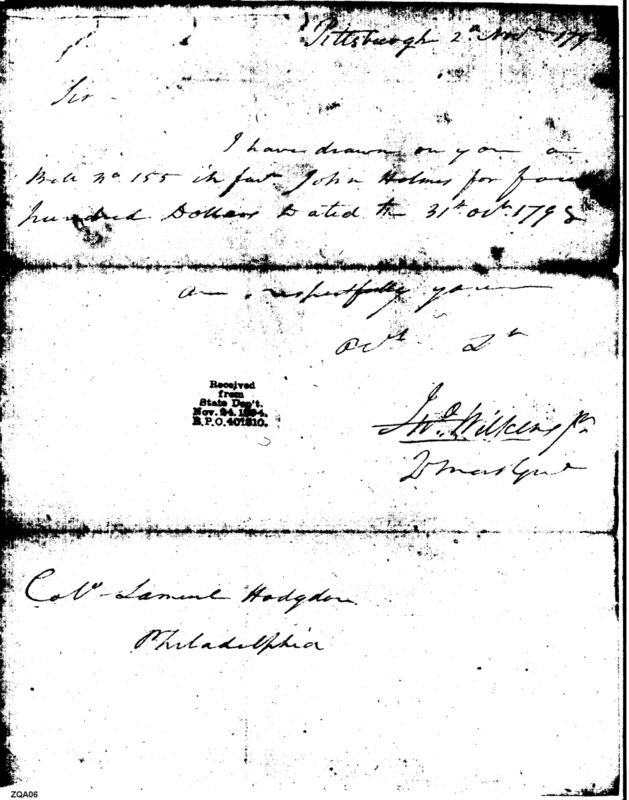 Pittsburgh 2d Novr 179
Sir
I have drawn on you a
Bill No 155 in favr John Holmes for four
hundred Dollars Dated the 31t Octr 1798
am respectfully your
Obt
Jno Wilkins Jr
Received
from
State Dep't.
Nov. 24. 1894.
R.P.O. 401810.
Colo Samuel Hodgdon
Philadelphia
ZQA06